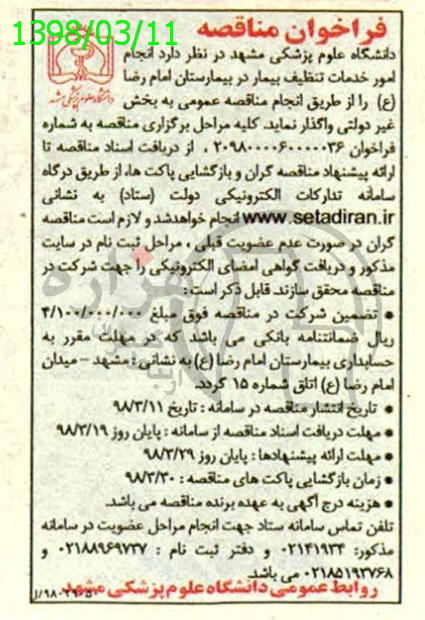 1398/03/11
فراخوان مناقصه
دانشگاه علوم پزشکی مشهد
دانشگاه علوم پزشکی مشهد در نظر دارد انجام
امور خدمات تنظیف بیمار در بیمارستان امام رضا
(ع) را از طریق انجام مناقصه عمومی به بخش
غیر دولتی واگذار نماید. کلیه مراحل برگزاری مناقصه به شماره
فراخوان ۲۰۹۸۰۰۰۰۶۰۰۰۰۰۳۶ ، از دریافت اسناد مناقصه تا
ارائه پیشنهاد مناقصه گران و بازگشایی پاکت ها، از طریق درگاه
سامانه تدارکات الکترونیکی دولت (ستاد) به نشانی
www.setadiran.ir انجام خواهدشد و لازم است مناقصه
گران در صورت عدم عضویت قبلی ، مراحل ثبت نام در سایت
مذکور و دریافت گواهی امضای الکترونیکی را جهت شرکت در
مناقصه محقق سازند. قابل ذکر است:
* تضمین شرکت در مناقصه فوق مبلغ ۴/۱۰۰/۰۰۰/۰۰۰
ریال ضمانتنامه بانکی می باشد که در مهلت مقرر به
حسابداری بیمارستان امام رضا (ع) به نشانی : مشهد - میدان
امام رضا (ع) اتاق شماره ۱۵ گردد.
* تاریخ انتشار مناقصه در سامانه : تاریخ ۹۸/۳/۱۱
* مهلت دریافت اسناد مناقصه از سامانه : پایان روز ۹۸/۳/۱۹
* مهلت ارائه پیشنهادها : پایان روز ۹۸/۳/۲۹
* زمان بازگشایی پاکت های مناقصه : ۹۸/۳/۳۰
* هزینه درج آگهی به عهده برنده مناقصه می باشد.
تلفن تماس سامانه ستاد جهت انجام مراحل عضویت در سامانه
مذکور: ۰۲۱۴۱۹۳۴ و دفتر ثبت نام : ۰۲۱۸۸۹۶۹۷۳۷ و
۰۲۱۸۵۱۹۳۷۶۸ می باشد.
روابط عمومی دانشگاه علوم پزشکی مشهد